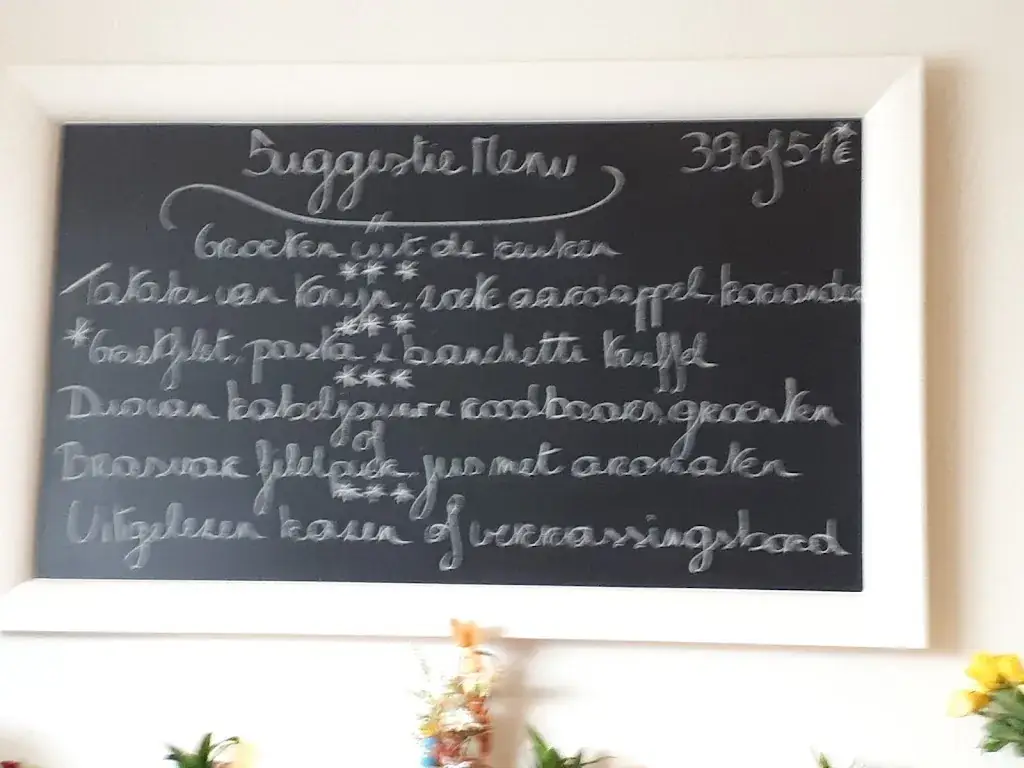 Suggestie Menu 39 of 51€*
Groeten uit de keuken
***
van Konijn, zoete aardappel, koriander
***
*Goetfilet, pasta & banchette truffel
***
Duo van kabeljauw & roodbaars, groenten
of
filet jus met aromaten
***
Uitgelezen kasen of verrassingsbord